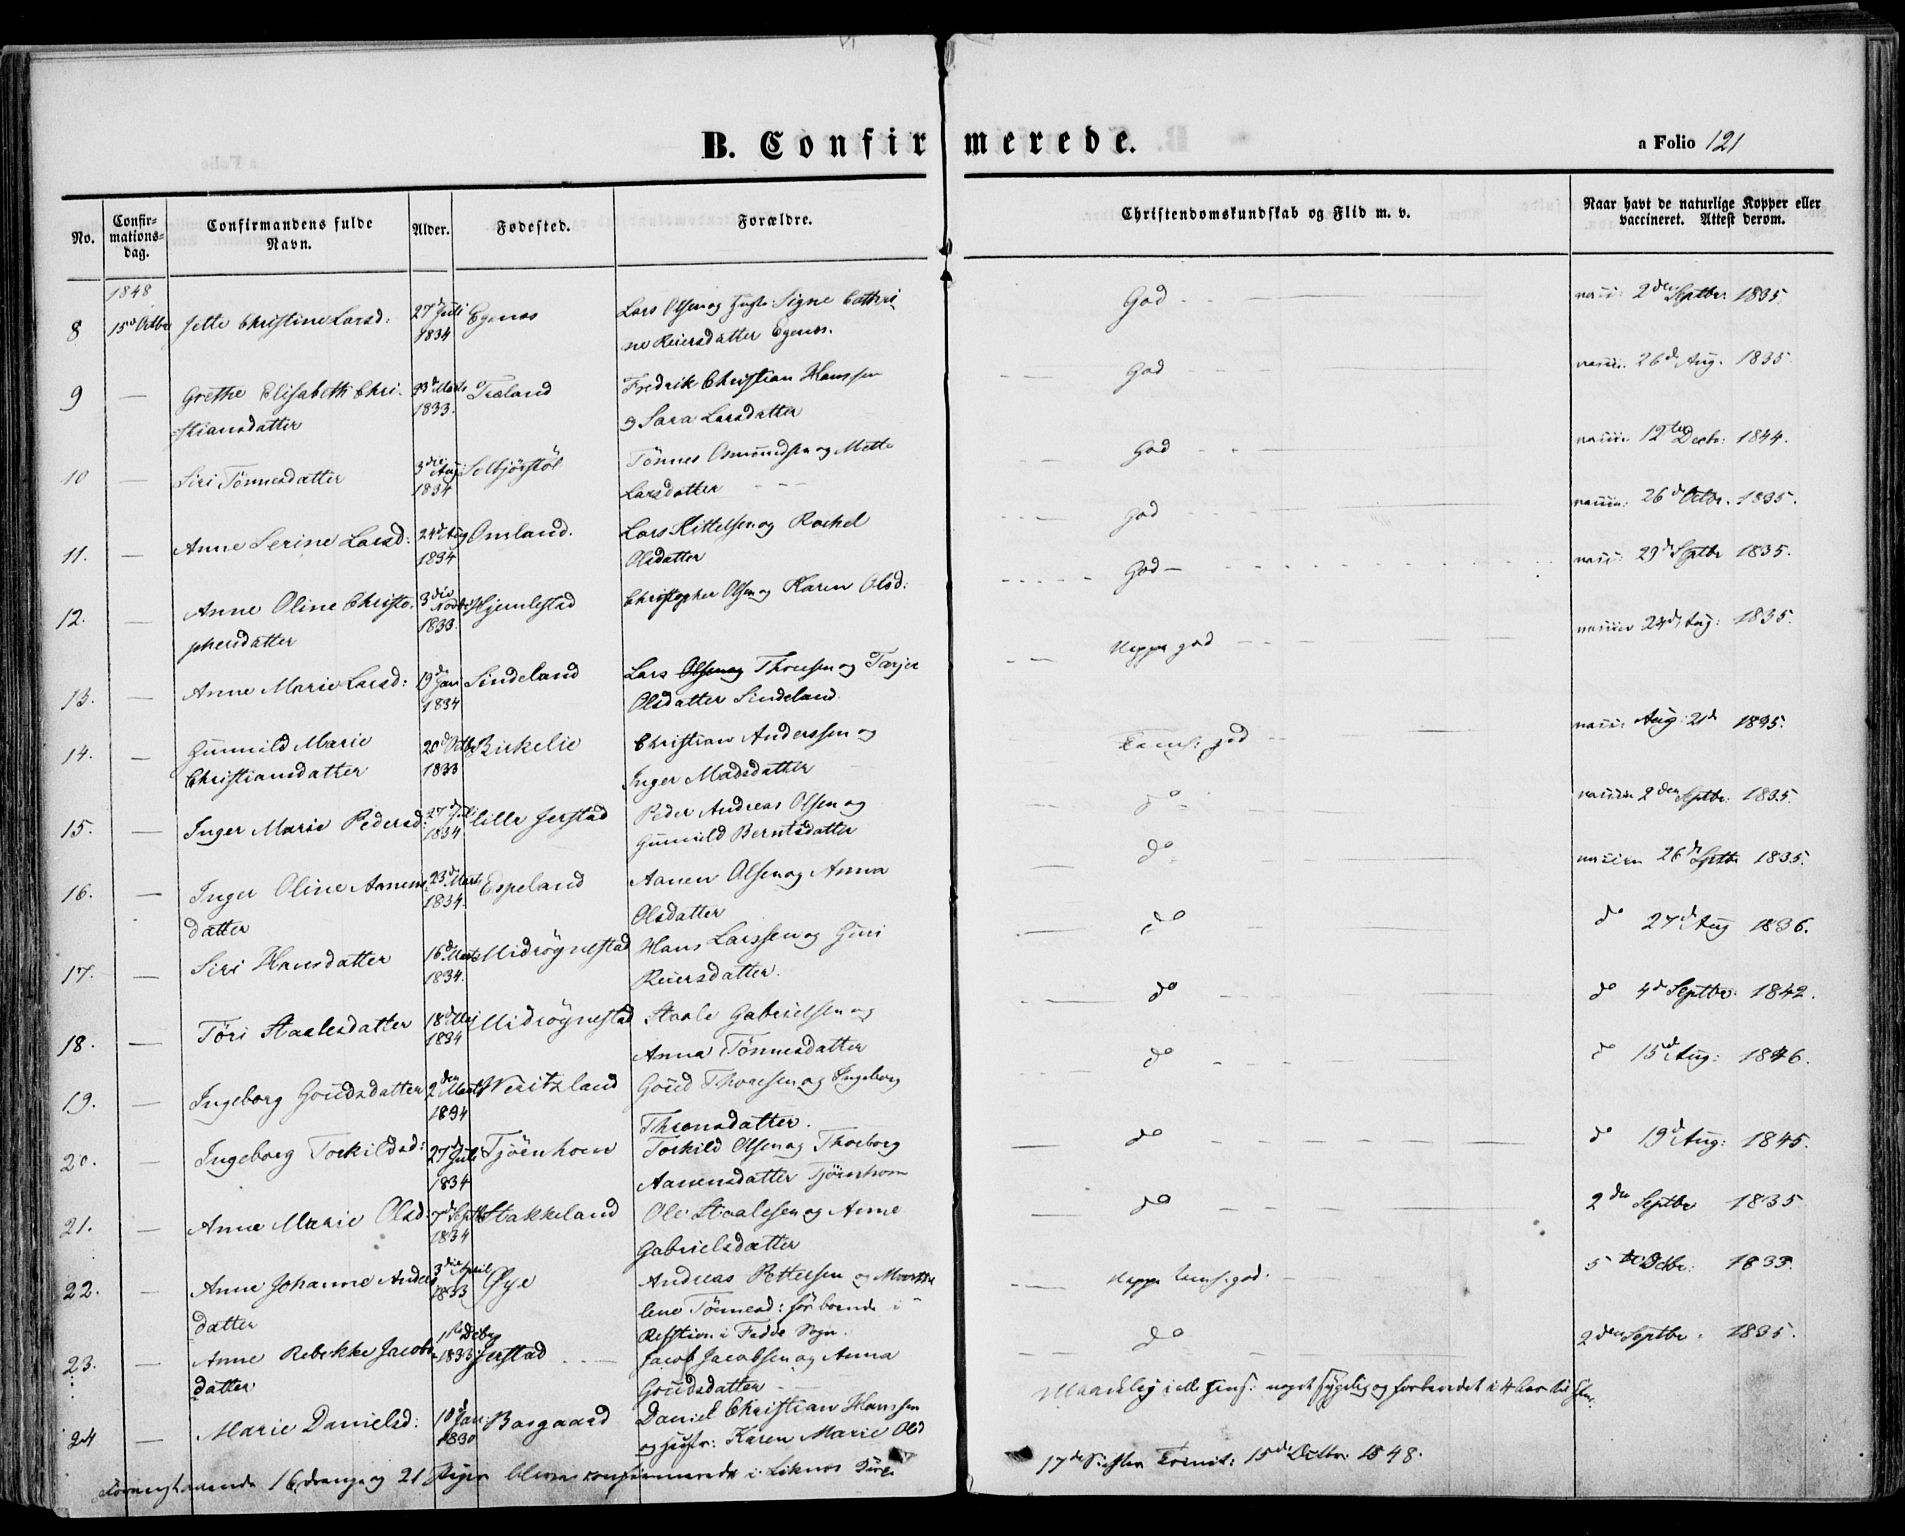 B. Confirmerede.
a Folio 121
No.
Confir-
mations-
dag.
Confirmandens fulde
Navn.
Alder.
Fødested.
Forældre.
Christendomskundskab og Flid m. v.
Naar havt de naturlige Kopper eller
vaccineret. Attest derom.
1848
8 15d Octbr Jette Christine Larsd: 27d Juli 1834 Egenæs Lars Olsen og Signe Cathri-
ne Reiersdatter Egenæs. God vacci: 2den Septbr: 1835
9 — Grethe Elisabeth Chri-
stiansdatter 23d Marts 1833. Træland Fredrik Christian Hanssen
og Sara Larsdatter God vaccin. 26d Aug. 1835
10 — Siri Tönnesdatter 3die Aug: 1834 Selbjörstöl Tönnes Osmundsen og Mette
Larsdatter God vaccin 12te Decbr: 1844.
11. — Anne Serine Larsd: 24d Aug 1834 Omland. Lars Kittelsen og Rachel
Olsdatter God vaccin: 26d Octbr. 1835.
12. — Anne Oline Christo-
phersdatter 3die Novbr 1833. Hjemlestad Christopher Olsen og Karen Olsd: God — vacci: 29d Septbr 1835.
13. — Anne Marie Larsd: 19d Jan 1834 Sindeland Lars Olsen og Thorsen og Tarjer
Olsdatter Sindeland. Neppe god vaccin 24d Aug: 1835.
14. — Gunnild Marie
Christiansdatter 20d Octbr 1833 Birkelie Christian Anderssen og
Inger Madsdatter god vacci: Aug: 21d 1835.
15. — Inger Marie Pedersd: 27d Juli 1834 lille Jerstad Peder Andreas Olsen og
Gunnild Berntsdatter do vaccin 2den Septbr: 1835.
16. — Inger Oline Aanens-
datter 23d Marts 1834. Espeland Aanen Olsen og Anna
Olsdatter do vaccin 26d Septbr 1835.
17. — Siri Hansdatter 16d Marts 1834. Midrögnestad Hans Larssen og Guri
Reiersdatter. do do 27d Aug 1836.
18. — Töri Staalesdatter 18d Mai 1834 Midrögnestad Staale Gabrielsen og
Anna Tönnesdatter do do 4d Septbr: 1842.
19. — Ingeborg Goudsdatter 2den Marts 1834 Goud Thoresen og Ingeborg
do do 15d Aug: 1846.
20. — Ingeborg Torkildsd: 27d Juli 1834 Tjörnhom Torkild Olsen og Thorborg
Aanensdatter Tjörnhom do do 19d Aug: 1845.
21. — Anne Marie Olsd: 7d Septbr 1834 Stakkeland Ole Staalesen og Anne
Gabrielsdatter do 2den Septbr 1835
22. — Anne Johanne Anders-
datter 3die April 1833 Øye Andreas Pettersen og
lene Tönnesd: i Fedde Sogn. Neppe god. 5te Octbr: 1835
23. — Anne Rebekke Jacobs-
datter 1ste Decbr 1833. Jerstad Jacob Jacobsen og Anna
Goudsdatter do 2den Septbr. 1835.
24 — Marie Danielsd: 10d Jan: 1830 Borgaard Daniel Christian Hanssen
og Karen Marie Olsd Maadelig i noget sygelig og forberedet i 4 Aar
16 drenge og 21 Piger blevne confirmerede i Liknæs
17de Trinit: 15de Octbr: 1848.